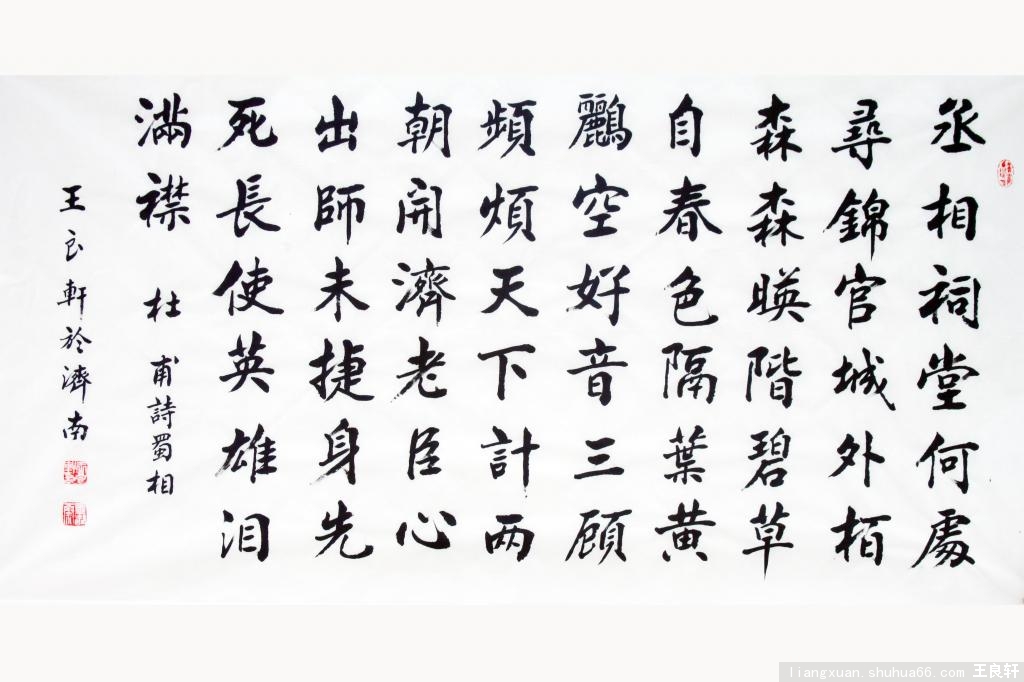 丞相祠堂何處
尋錦官城外栢
森森暎階碧草
自春色隔葉黄
鸝空好音三顧
頻煩天下計两
朝開濟老臣心
出師未捷身先
死長使英雄泪
滿襟 杜甫詩蜀相
王良軒於濟南
liangxuan.shuhua66.com 王良轩